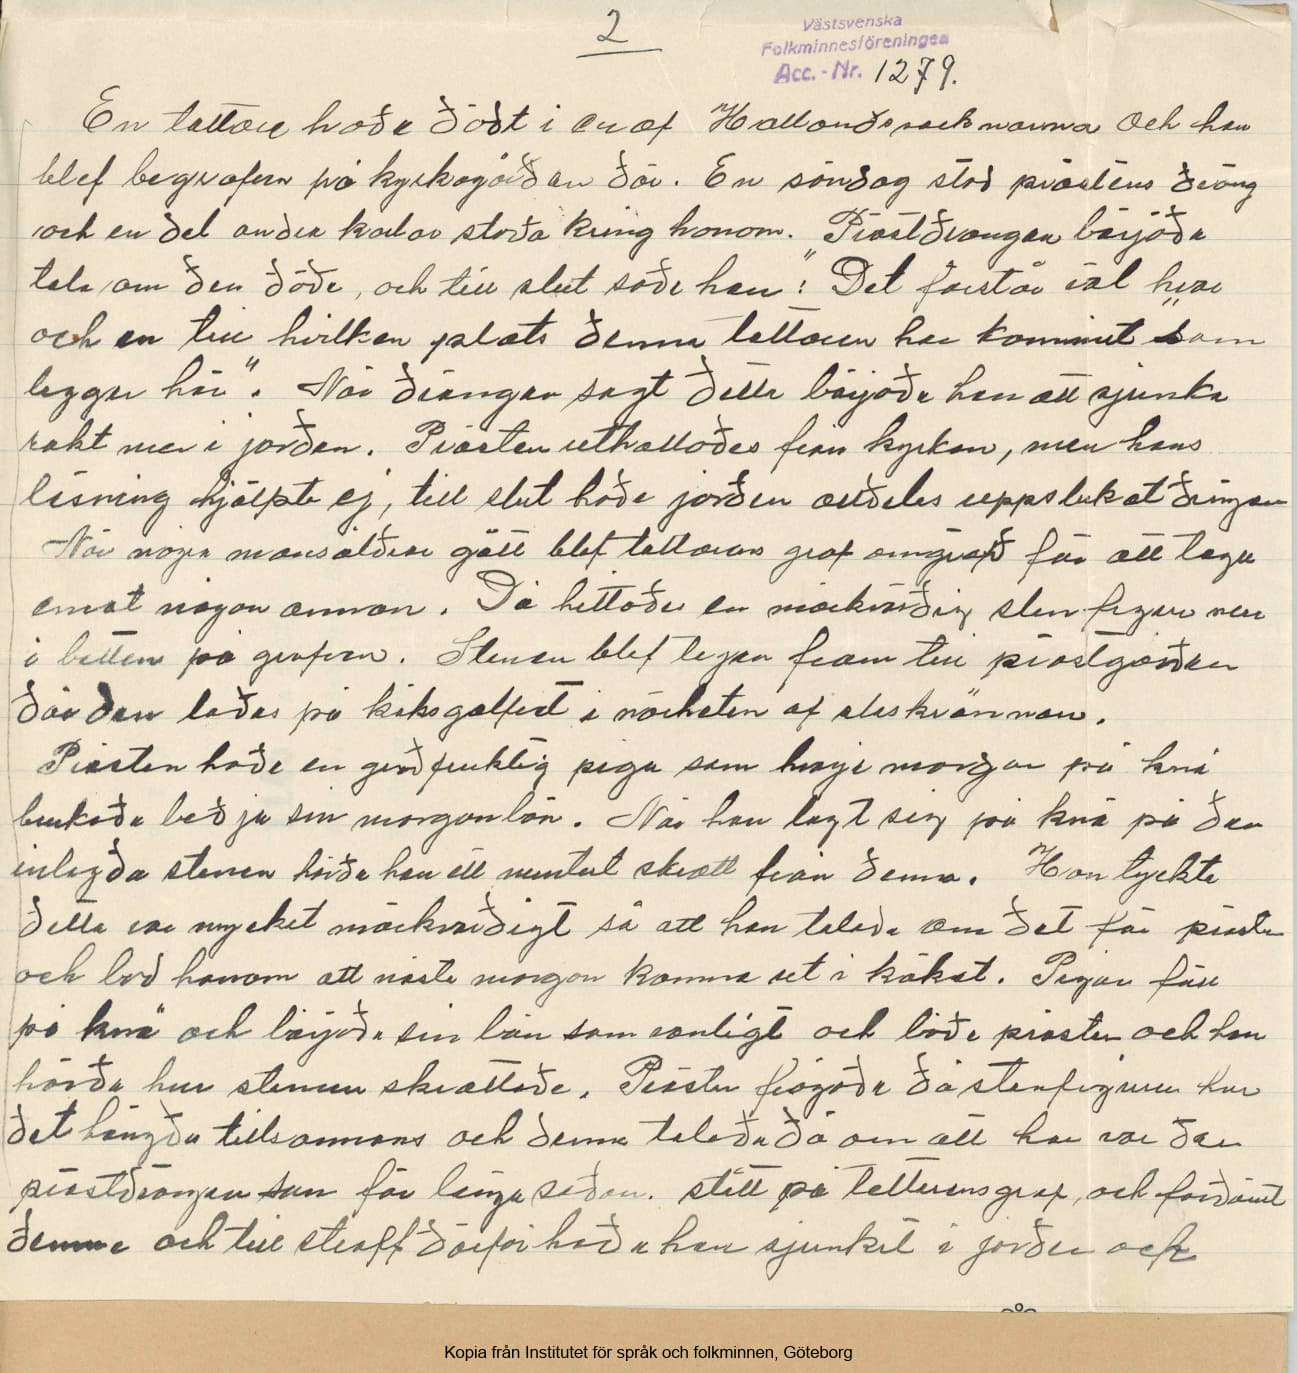 2
Västsvenska
Folkminnesföreningen
Acc.-Nr. 1279.
En tattare hade dödt i en af Hallandssocknarna och han
blef begrafven på kyrkogården där. En söndag stod prästens dräng
och en del andra karlar stoda kring honom. Prästdrängen börjöde
tala om den döde, och till slut sade han: "Det förstår väl hvar
och en till hvilken plats denna tattaren har kommit som
legger här". När drängen sagt detta börjode han att sjunka
rakt ner i jorden. Prästen uthallades från kyrkan, men hans
läsning hjälpte ej, till slut hade jorden alldeles uppslukat drängen
När några mansåldrar gått blef tattarens graf omgräfd för att taga
emot någon annan. Då hittades en märkvärdig stenfigur nere
i botten på grafven. Stenen blef tagen fram till prästgården
där den lades på köksgolfvet i närheten af
Prästen hade en gudfruktig piga som hvarje morgon på knä
brukade bedja sin morgonbön. När hon lagt sig på knä på den
inlagda stenen hörde hon ett muntert skratt från denna. Hon tyckte
detta var mycket märkvärdigt så att hon talade om det för prästen
och bad honom att nästa morgon komma ut i köket. Pigan föll
på knä och börjode sin bön som vanligt och både prästen och hon
hörde hur stenen skrattade. Prästen frågade då stenfiguren hur
det hängde tillsammans och denna talade då om att han var den
prästdrängen som för länge sedan. stått på tattarens graf, och fördömt
denne och till straff därför hade han sjunkit i jorden och
Kopia från Institutet för språk och folkminnen, Göteborg